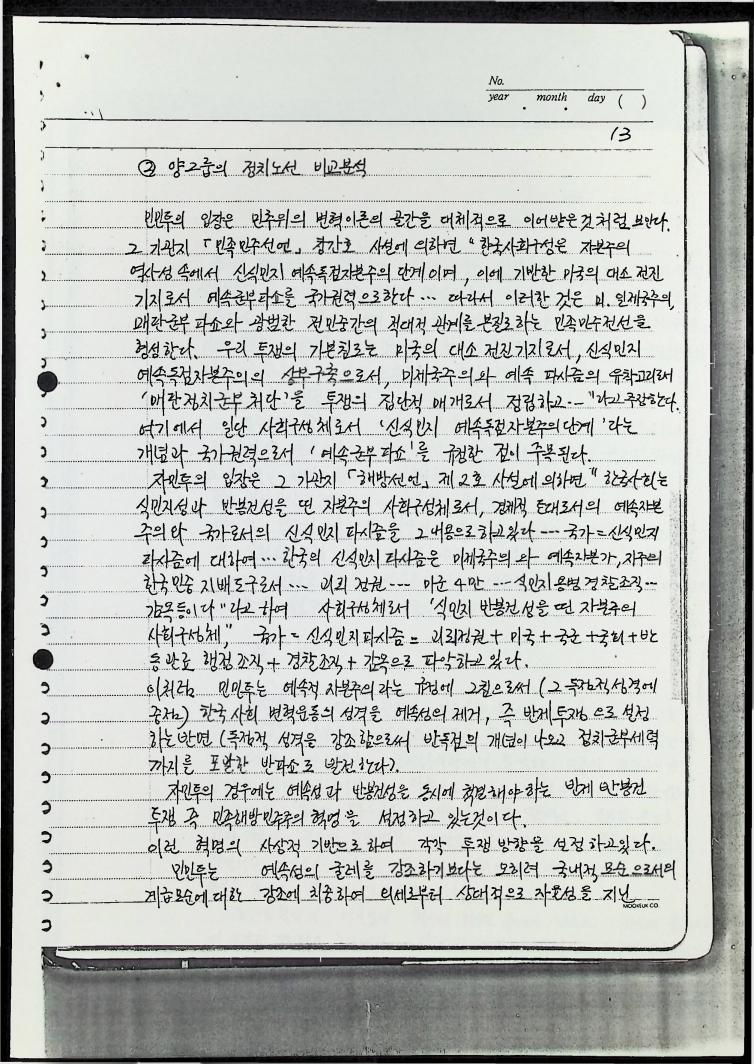 No.
year month day ( )
13
② 양그룹의 정치노선 비교분석
민민투의 입장은 민추위의 변혁이론의 골간을 대체적으로 이어받은것 처럼 보인다.
그 기관지 「민족민주선언」 창간호 사설에 의하면 " 한국사회구성은 자본주의
역사성 속에서 신식민지 예속독점자본주의 단계이며, 이에 기반한 미국의 대소 전진
기지로서 예속군부파쇼를 국가권력으로한다 … 따라서 이러한 것은 미.일제국주의,
매판군부 파쇼와 광범한 전민중간의 적대적 관계를 본질로하는 민족민주전선을
형성한다. 우리 투쟁의 기본침로는 미국의 대소 전진기지로서, 신식민지
예속독점자본주의의 상부구축으로서, 미제국주의와 예속 파시즘의 유착고리로서
'매판정치군부 최단'을 투쟁의 집단적 매개로서 정립하고 … "라고 주장한다.
여기에서 일단 사회구성체로서 '신식민지 예속독점자본주의 단계' 라는
개념과 국가권력으로서 ' 예속군부파쇼'를 규정한 점이 주목된다.
자민투의 입장은 그 기관지 「해방선언」 제2호 사설에 의하면 " 한국사회는
식민지성과 반봉건성을 띤 자본주의 사회구성체로서, 경제적 토대로서의 예속자본
주의와 국가로서의 신식민지 파시즘을 그 내용으로하고있다 --- 국가 = 신식민지
파시즘에 대하여 … 한국의 신식민지 파시즘은 미제국주의와 예속자본가, 지주의
한국민중 지배도구로서 … 괴뢰 정권 --- 미군 4만 --- 식민지용병 경찰조직 …
감옥등이다 "라고 하여 사회구성체로서 '식민지 반봉건성을 띤 자본주의
사회구성체," 국가 = 신식민지파시즘 = 괴뢰정권 + 미국 + 국군 + 국회 + 반
동관료 행정조직 + 경찰조직 + 감옥으로 파악하고있다.
이처럼 민민투는 예속적 자본주의라는 규정에 그침으로서 (그 독점적성격에
중점) 한국사회 변혁운동의 성격을 예속성의 제거, 즉 반제투쟁 으로 설정
하는 반면 (독점적 성격을 강조함으로써 반독점의 개념이 나오고 정치군부세력
까지를 포괄한 반파쇼로 발전한다).
자민투의 경우에는 예속성과 반봉건성을 동시에 척결해야하는 반제 반봉건
투쟁 즉 민족해방민주주의 혁명을 설정하고 있는것이다.
이런 혁명의 사상적 기반으로하여 각각 투쟁 방향을 설정하고있다.
민민투는 예속성의 굴레를 강조하기보다는 오히려 국내적 모순으로서의
계급모순에 대한 강조에 치중하여 외세로부터 상대적으로 자율성을 지닌
MOOKEUK CO.